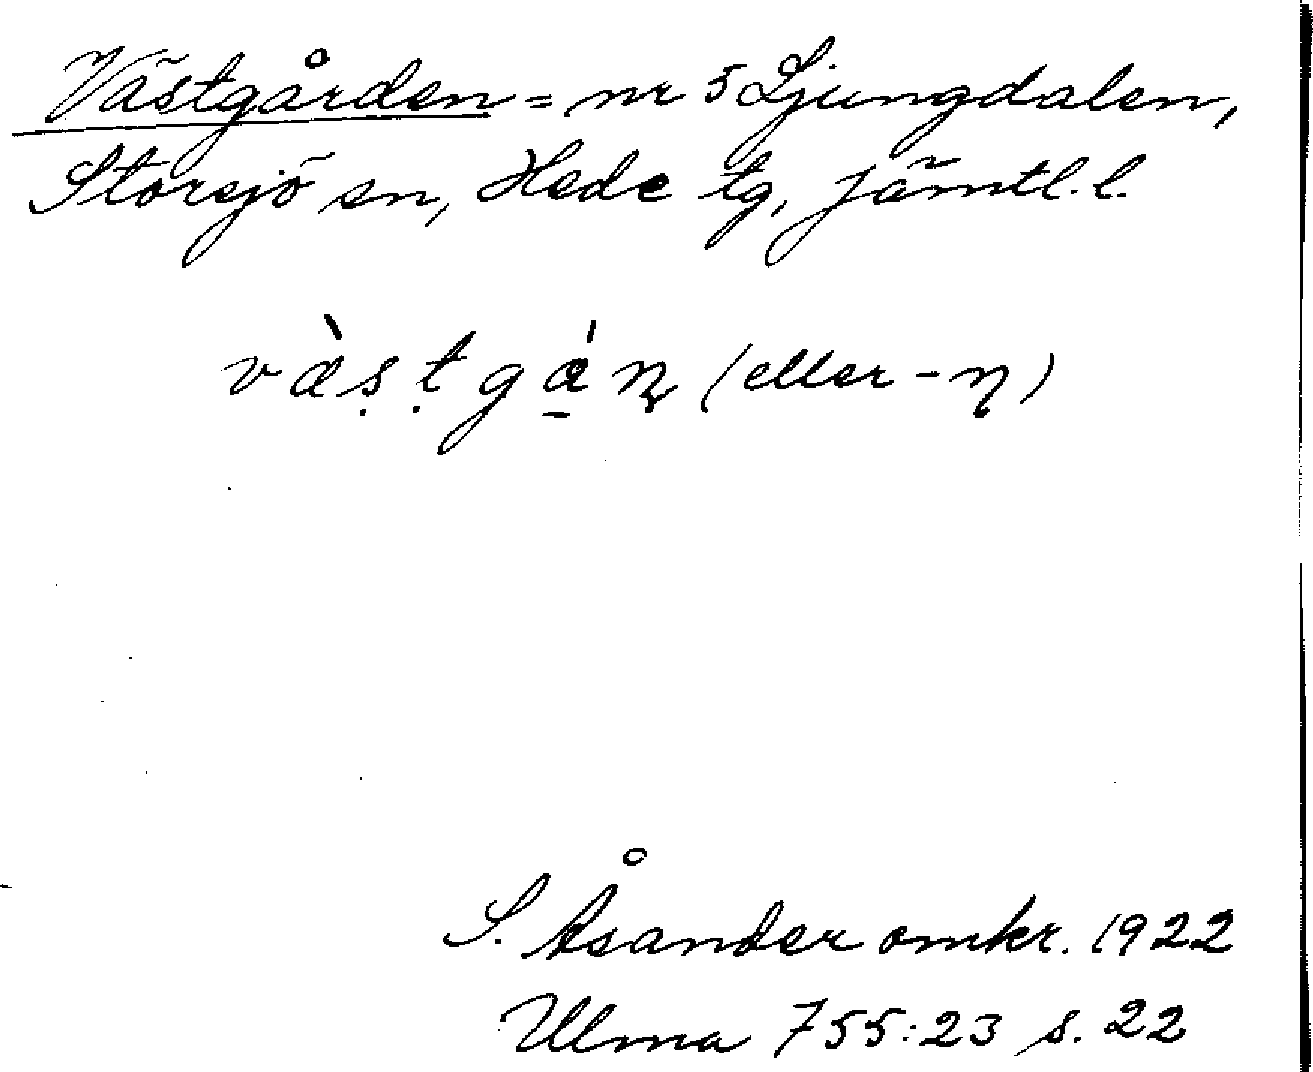 Västgården = nr 5 Ljungdalen,
Storsjö sn, Hede tg, Jämtl. l.
væ̀ṣṭgǽ̠ɳ (eller -η)
S. Åsander omkr. 1922
Ulma 755:23 s. 22